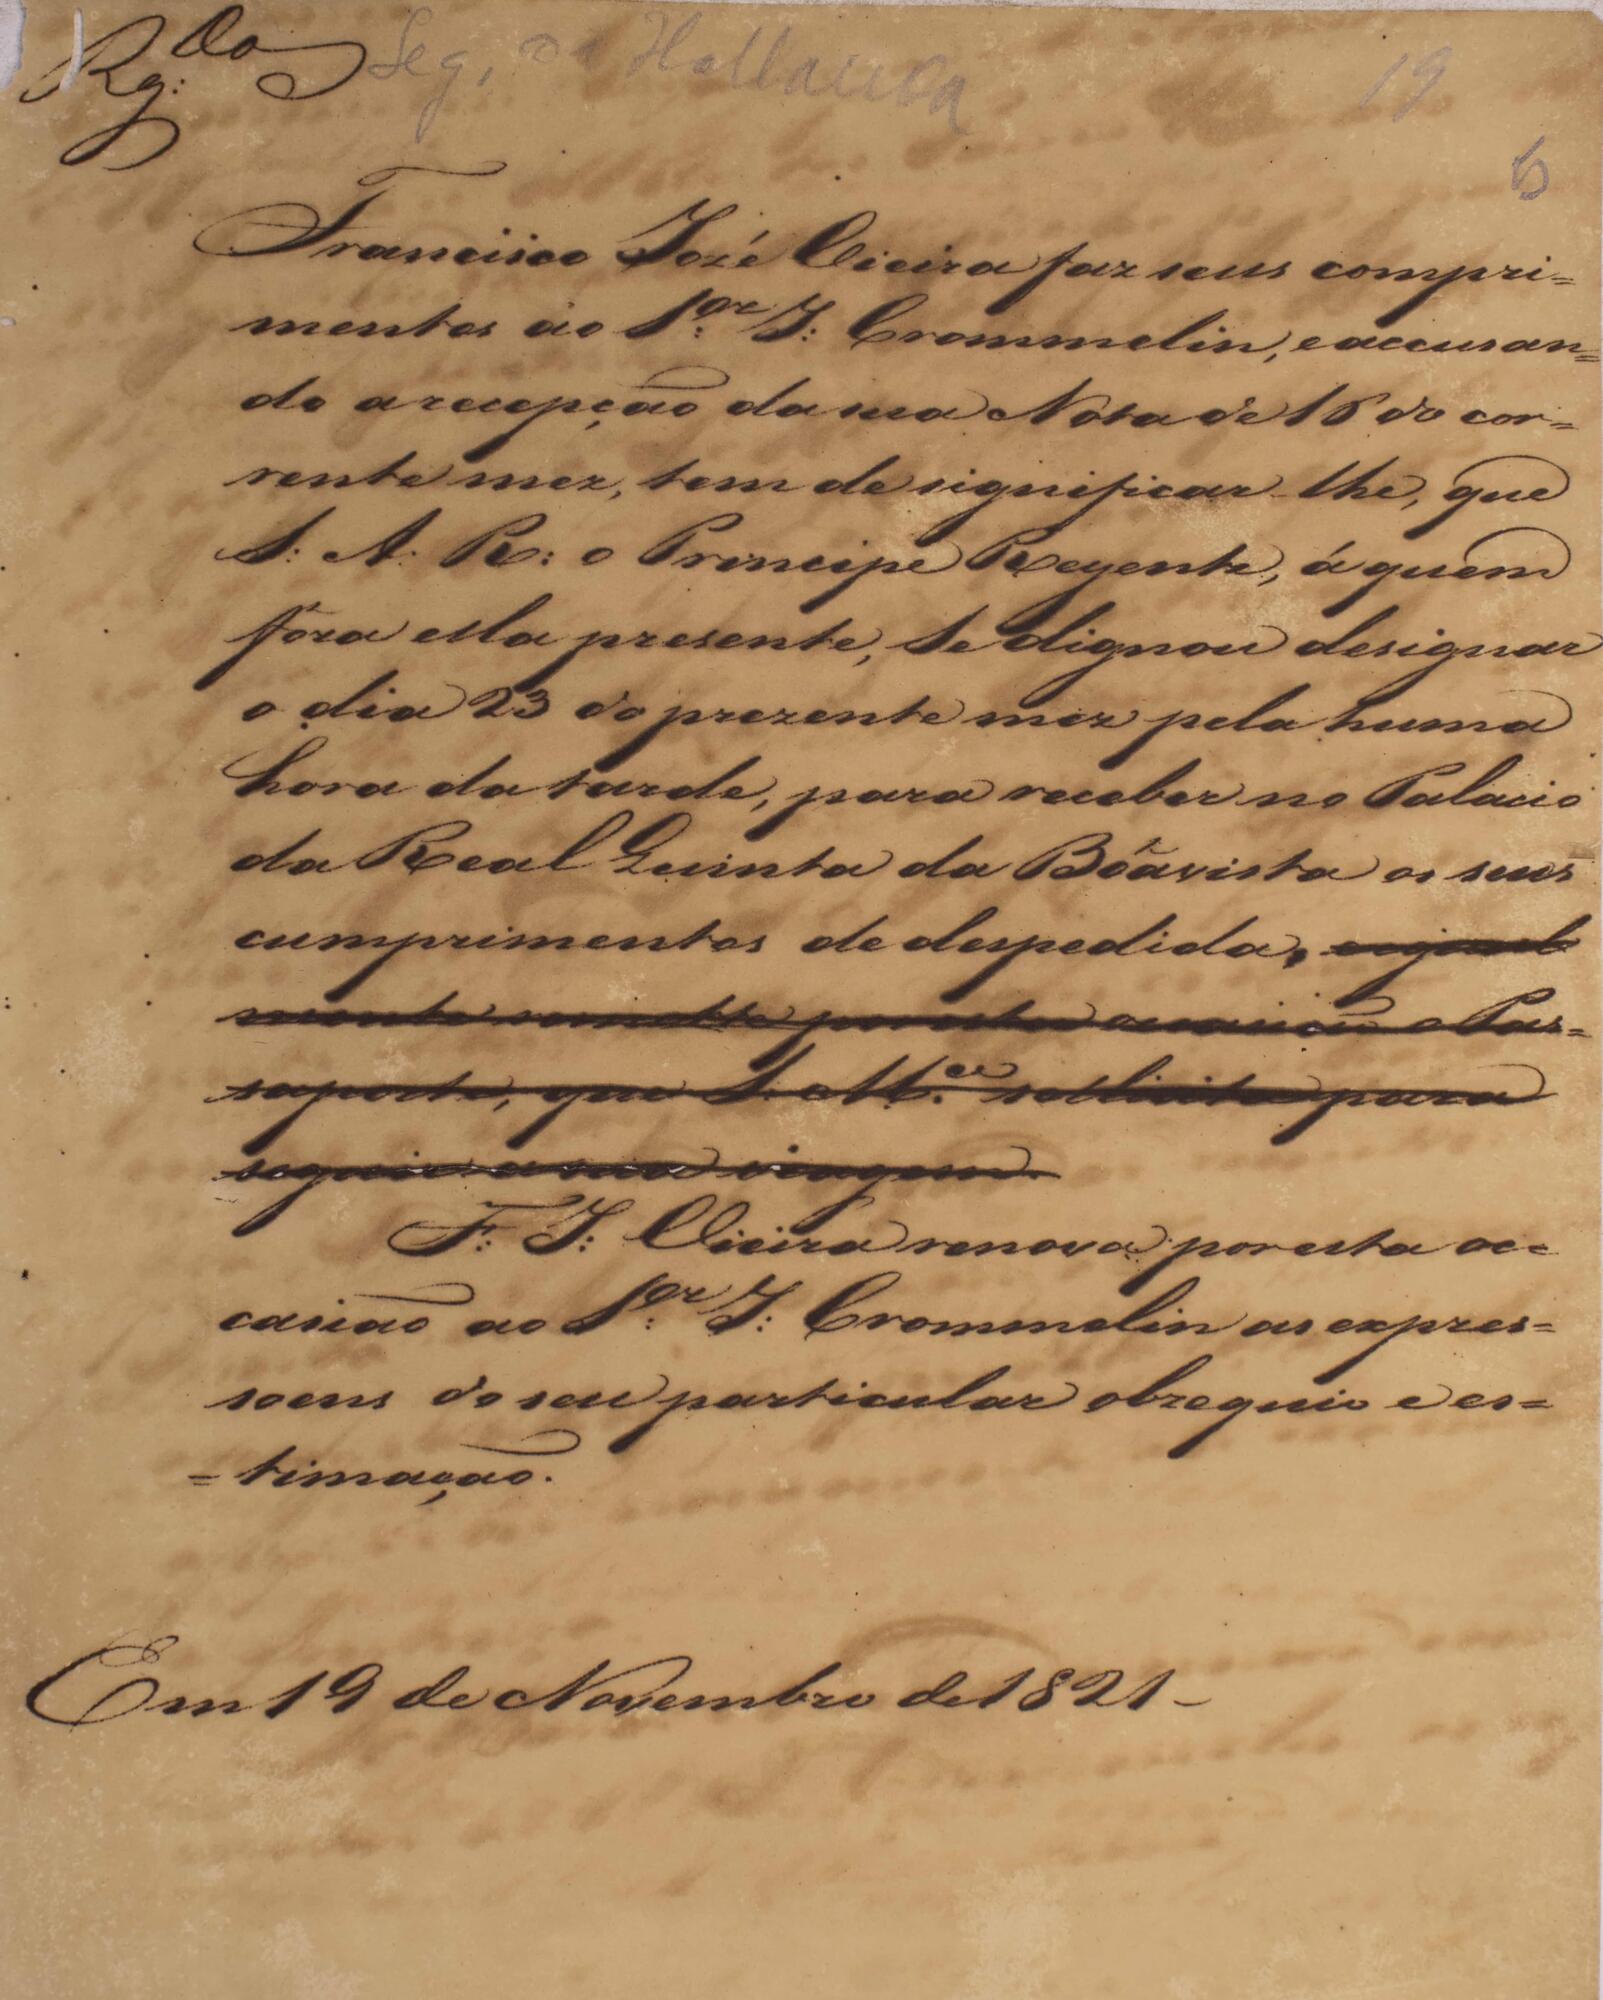 Rg.do Leg. da Hollanda 19
6
Francisco Jozé Vieira faz seus compri=
mentos ao S.or J: Crommelin, e accusan=
do a recepção da sua Nota de 16 do cor=
rente mez, tem de significar-lhe, que
S: A: R: o Principe Regente, á quem
fôra esta presente, Se dignou designar
o dia 23 do prezente mez pela huma
hora da tarde, para receber no Palacio
da Real Quinta da Bôavista os seus
cumprimentos de despedida, e igual
mente remette por esta occasião o Pas=
saporte, que S. M.ce sollicita para
seguir a sua viagem.
F: J: Vieira renova por esta oc=
casião ao S.or J: Crommelin as expres=
soens do seu particular obzequio e es=
=timação.
Em 19 de Novembro de 1821-